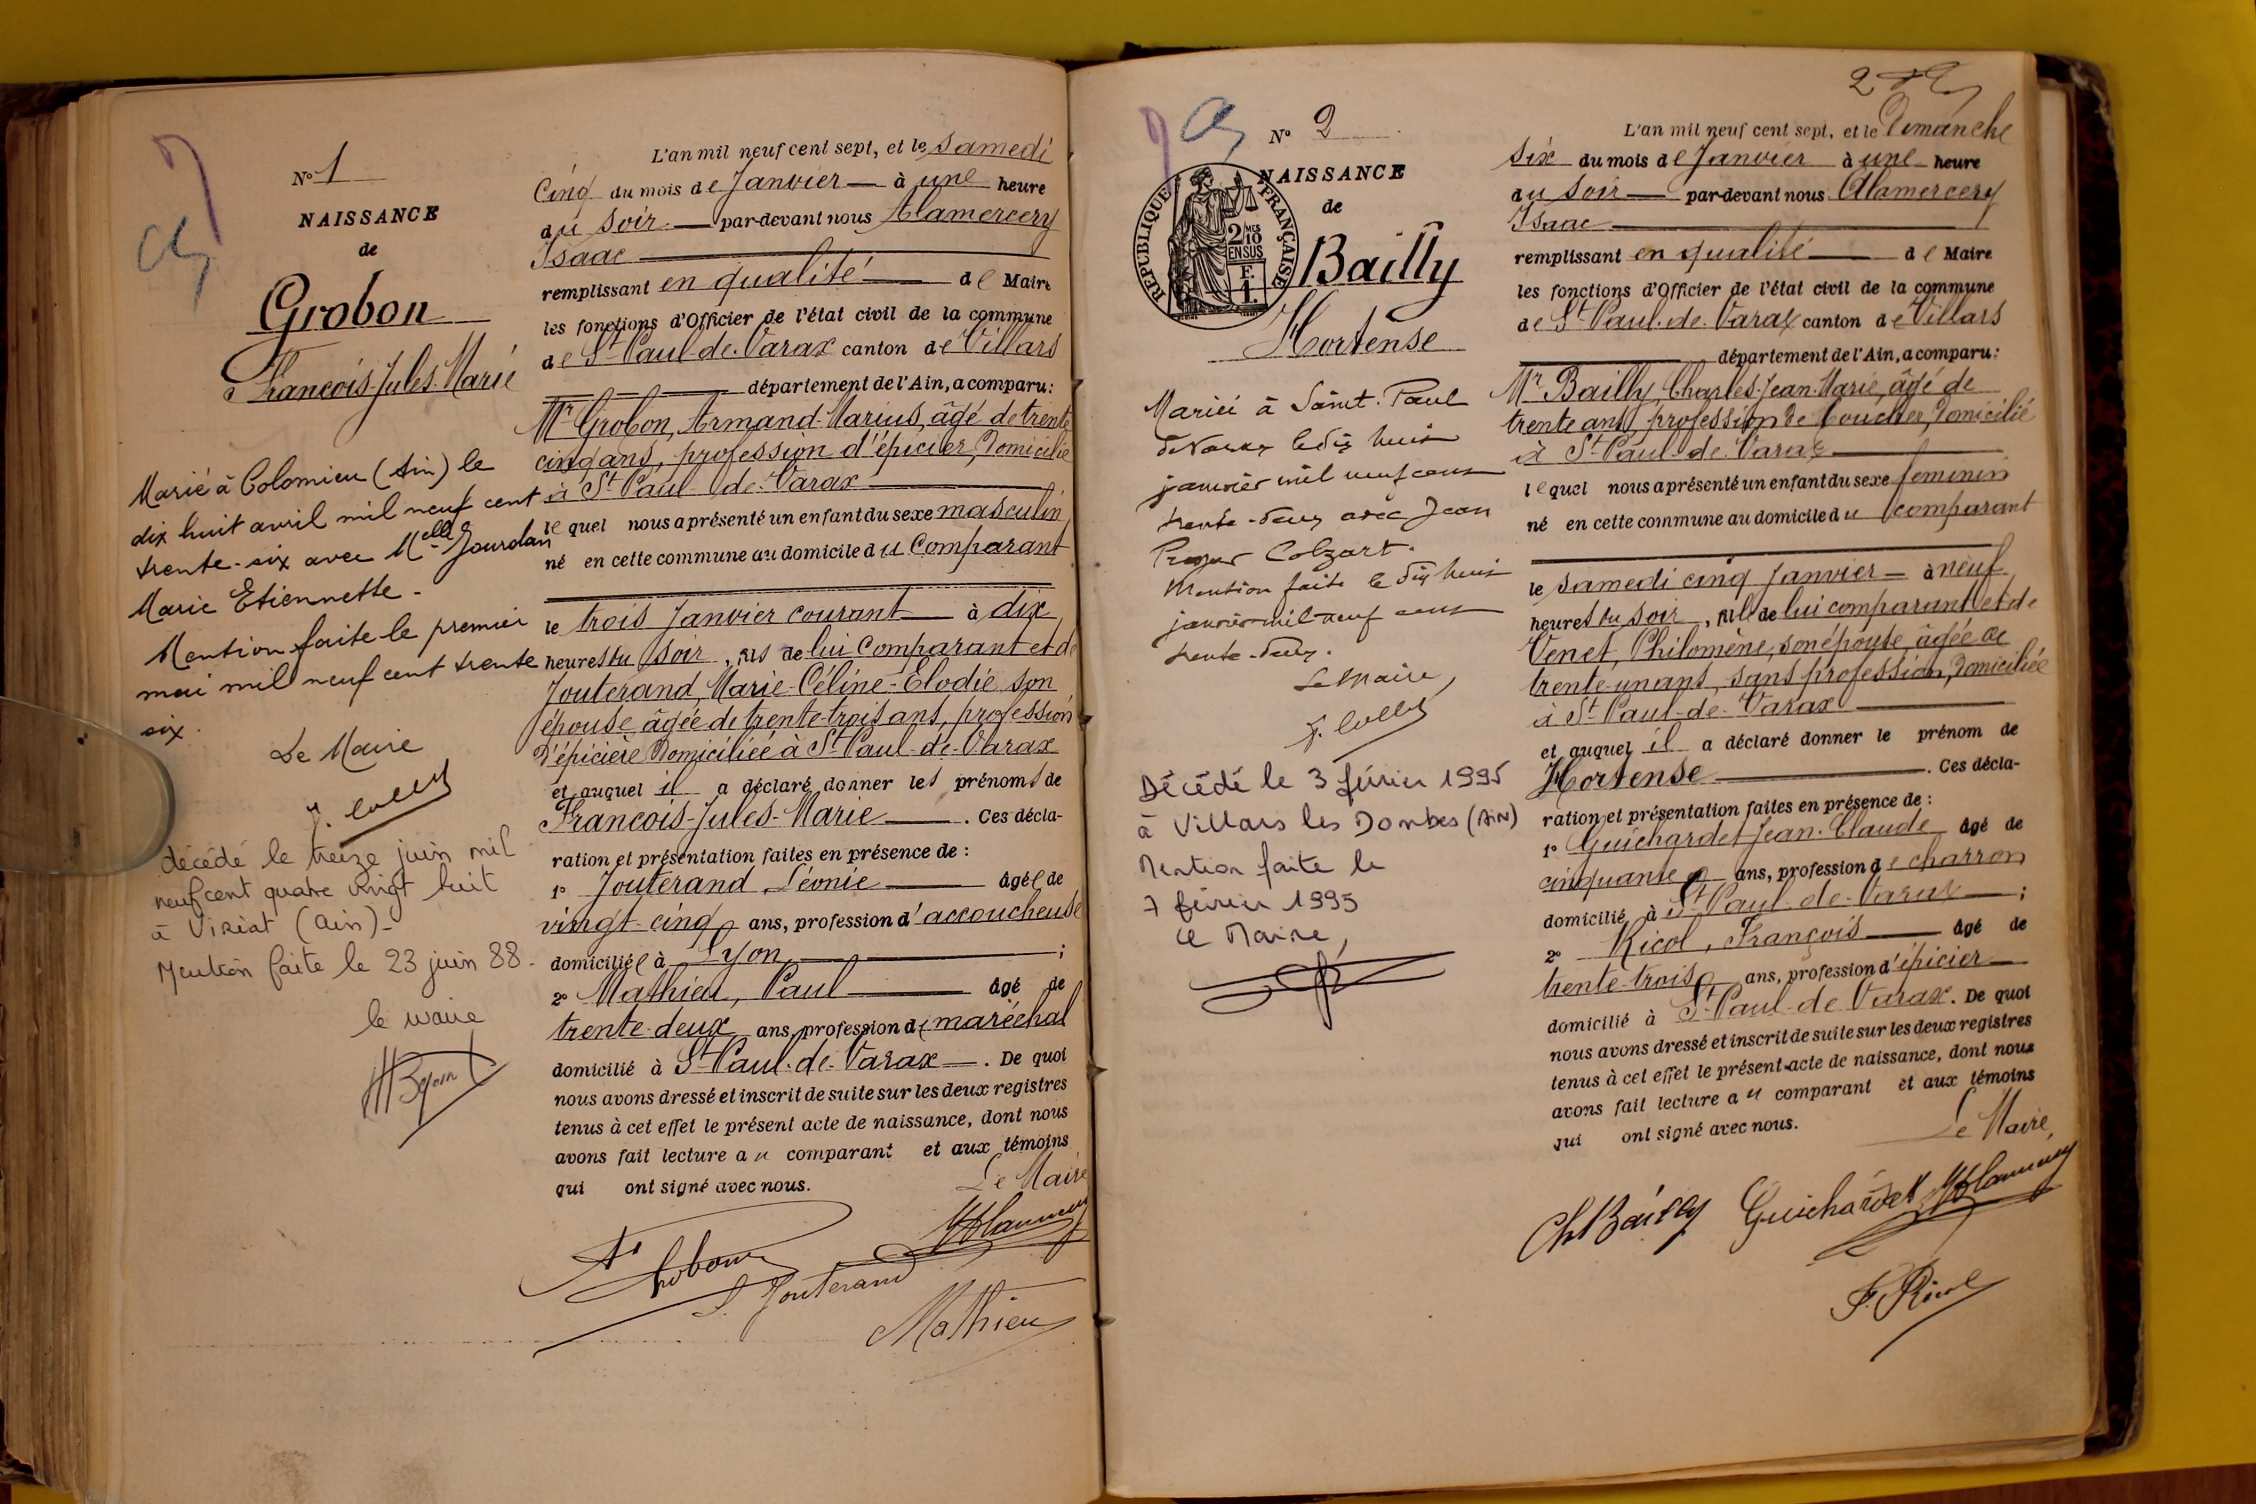 N° 1
NAISSANCE
de
Grobon
François-Jules-Marie
Marié à Colomieu (Ain) le
dix huit avril mil neuf cent
trente-six avec Melle Jourdan
Marie Etiennette.
Mention faite le premier
mai mil neuf cent trente
six.
Le Maire
décédé le treize juin mil
neuf cent quatre vingt huit
à Viriat (Ain)-
Mention faite le 23 juin 88.
le maire
L'an mil neuf cent sept, et le samedi
cinq du mois de Janvier à une heure
du soir par-devant nous Alamercery
Isaac
remplissant en qualité de Maire
les fonctions d'Officier de l'état civil de la commune
de St Paul-de-Varax canton de Villars
département de l'Ain, a comparu:
Mr Grobon, Armand-Marius, âgé de trente
cinq ans, profession d'épicier, domicilié
à St Paul-de-Varax
lequel nous a présenté un enfant du sexe masculin,
né en cette commune au domicile du Comparant
le trois Janvier courant à dix
heures du soir, fils de lui Comparant et de
Jouterand, Marie-Céline-Elodie son
épouse âgée de trente-trois ans, profession
d'épicière domiciliée à St Paul-de-Varax
et auquel il a déclaré donner les prénoms de
François-Jules-Marie. Ces décla-
ration et présentation faites en présence de :
1° Jouterand Léonie âgée de
vingt-cinq ans, profession d'accoucheuse
domiciliée à Lyon ;
2° Mathieu, Paul âgé de
trente-deux ans, profession de maréchal
domicilié à St Paul-de-Varax. De quoi
nous avons dressé et inscrit de suite sur les deux registres
tenus à cet effet le présent acte de naissance, dont nous
avons fait lecture au comparant et aux témoins
qui ont signé avec nous.
Le Maire
Grobon
L. Jouterand
Mathieu
2
N° 2
NAISSANCE
de
RÉPUBLIQUE FRANÇAISE
2 MES 10 EN SUS
F. 1.
Bailly
Hortense
Mariée à Saint-Paul
de Varax le dix huit
janvier mil neuf cent
trente-deux avec Jean
Colzart.
Mention faite le dix huit
janvier mil neuf cent
trente-deux.
Le Maire,
Décédé le 3 février 1995
à Villars les Dombes (AIN)
Mention faite le
7 février 1995
Le Maire,
L'an mil neuf cent sept, et le Dimanche
six du mois de Janvier à une heure
du soir par-devant nous Alamercery
Isaac
remplissant en qualité de Maire
les fonctions d'Officier de l'état civil de la commune
de St Paul-de-Varax canton de Villars
département de l'Ain, a comparu:
Mr Bailly, Charles-Jean-Marie, âgé de
trente ans, profession de boucher, domicilié
à St Paul-de-Varax
lequel nous a présenté un enfant du sexe féminin
né en cette commune au domicile du comparant
le samedi cinq Janvier à neuf
heures du soir, fille de lui comparant et de
Venet, Philomène, son épouse, âgée de
trente-un ans, sans profession, domiciliée
à St Paul-de-Varax
et auquel il a déclaré donner le prénom de
Hortense. Ces décla-
ration et présentation faites en présence de :
1° Guichardet Jean-Claude âgé de
cinquante ans, profession de charron
domicilié à St Paul-de-Varax ;
2° Ricol, François âgé de
trente-trois ans, profession d'épicier
domicilié à St Paul-de-Varax. De quoi
nous avons dressé et inscrit de suite sur les deux registres
tenus à cet effet le présent acte de naissance, dont nous
avons fait lecture au comparant et aux témoins
qui ont signé avec nous.
Le Maire,
Ch Bailly Guichardet
F. Ricol